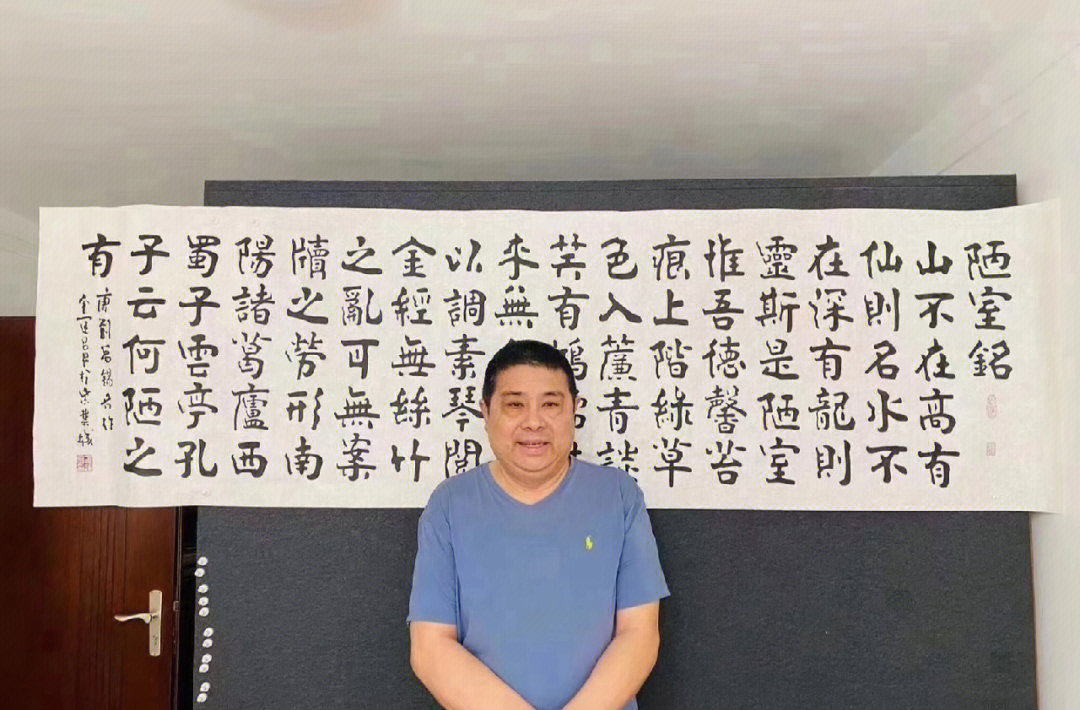 陋室銘
山不在高有
仙則名水不
在深有龍則
靈斯是陋室
惟吾德馨苔
痕上階綠草
色入簾青談
笑有鴻
来無
以調素琴閱
金經無絲竹
之亂耳無案
牘之勞形南
陽諸葛廬西
蜀子雲亭孔
子云何陋之
有
唐劉禹錫